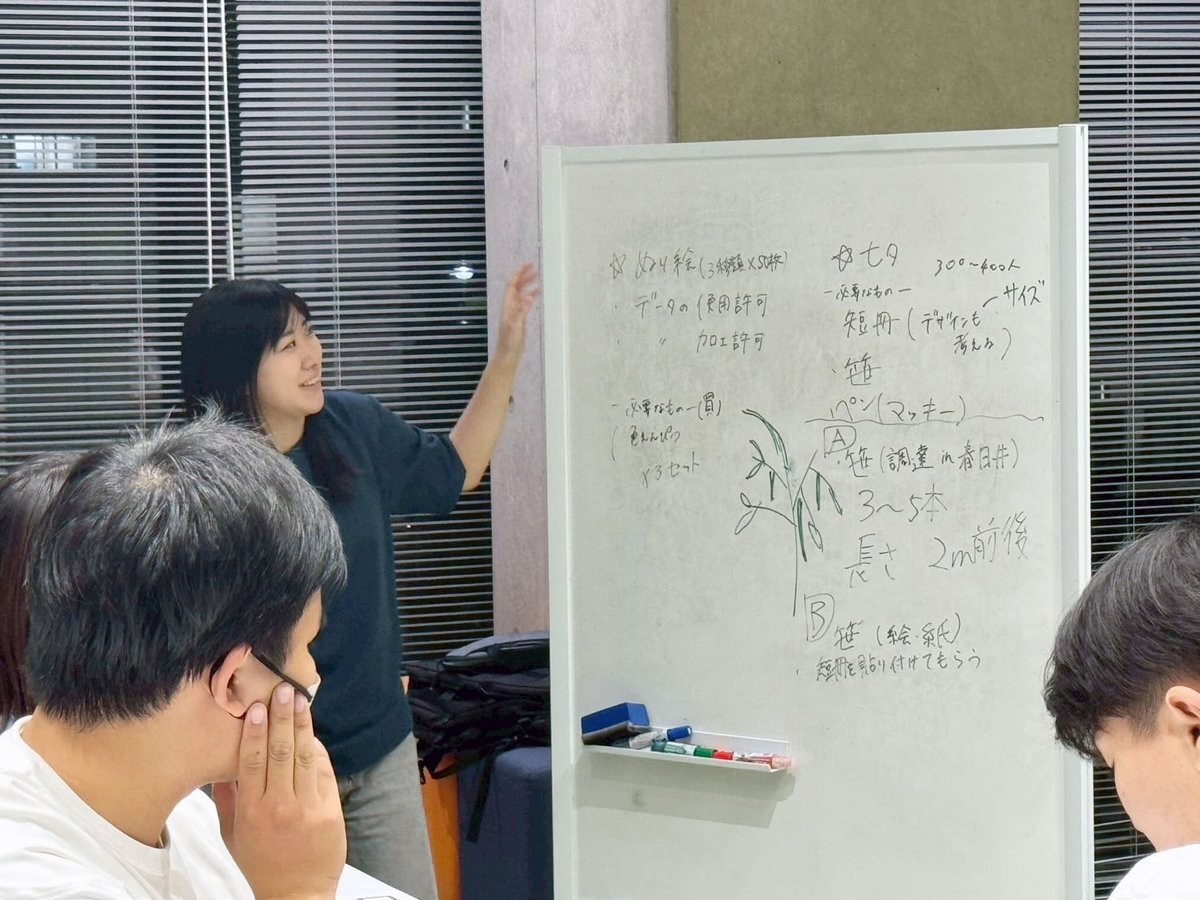 ☆ ぬり絵 (3種類×50枚)
・ データの使用許可
・ 〃 加工許可
ー必要なものー(買)
色えんぴつ
×3セット
☆ 七夕 300〜400人
ー必要なものー
サイズ
短冊 (デザインも
考える)
・笹
ペン(マッキー)
A
・笹 (調達 in 春日井)
3〜5本
長さ 2m前後
B
笹 (絵・紙)
・短冊を貼り付けてもらう